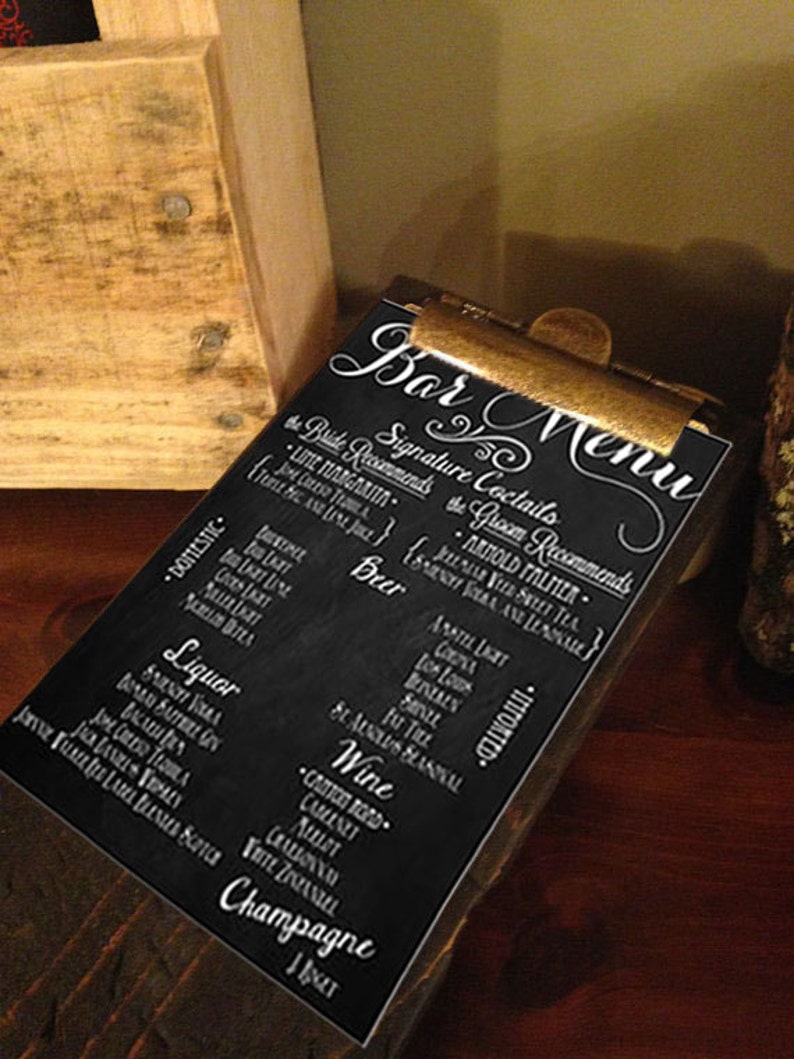 Bar Menu
Signature Coctails
the Bride Recommends
• LIME MARGARITA •
{ JOSE CUERVO TEQUILA,
TRIPLE SEC, AND LIME JUICE }
the Groom Recommends
• ARNOLD PALMER •
{ JEREMIAH WEED SWEET TEA,
SMIRNOFF VODKA, AND LEMONADE }
Beer
• DOMESTIC •
BUDWEISER
BUD LIGHT
BUD LIGHT LIME
COORS LIGHT
MILLER LIGHT
MICHELOB ULTRA
AMSTEL LIGHT
CORONA
DOS EQUIS
HEINEKEN
SHINER
FAT TIRE
ST. ARNOLD'S SEASONAL
• IMPORTED •
Liquor
SMIRNOFF VODKA
BOMBAY SAPPHIRE GIN
BACARDI RUM
JOSE CUERVO TEQUILA
JACK DANIEL'S WHISKEY
JOHNNIE WALKER RED LABEL BLENDED SCOTCH
Wine
CABERNET
MERLOT
CHARDONNAY
WHITE ZINFANDEL
Champagne
J. ROGET